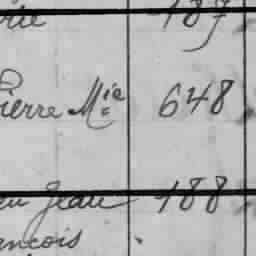 187
Pierre Mie 648
Jean 188
ancois